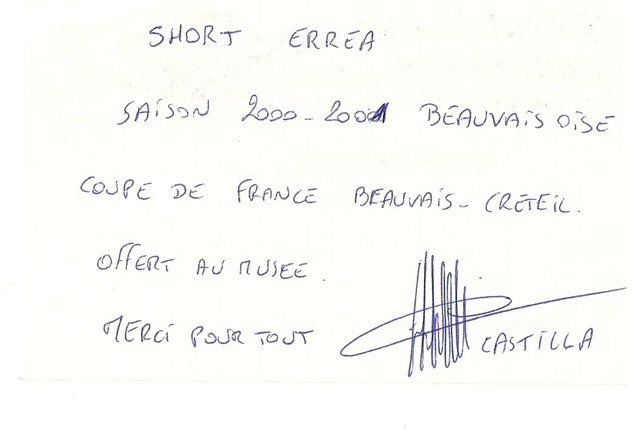 SHORT ERREA
SAISON 2000-2001 BEAUVAIS OISE
COUPE DE FRANCE BEAUVAIS - CRETEIL.
OFFERT AU MUSEE.
MERCI POUR TOUT
CASTILLA